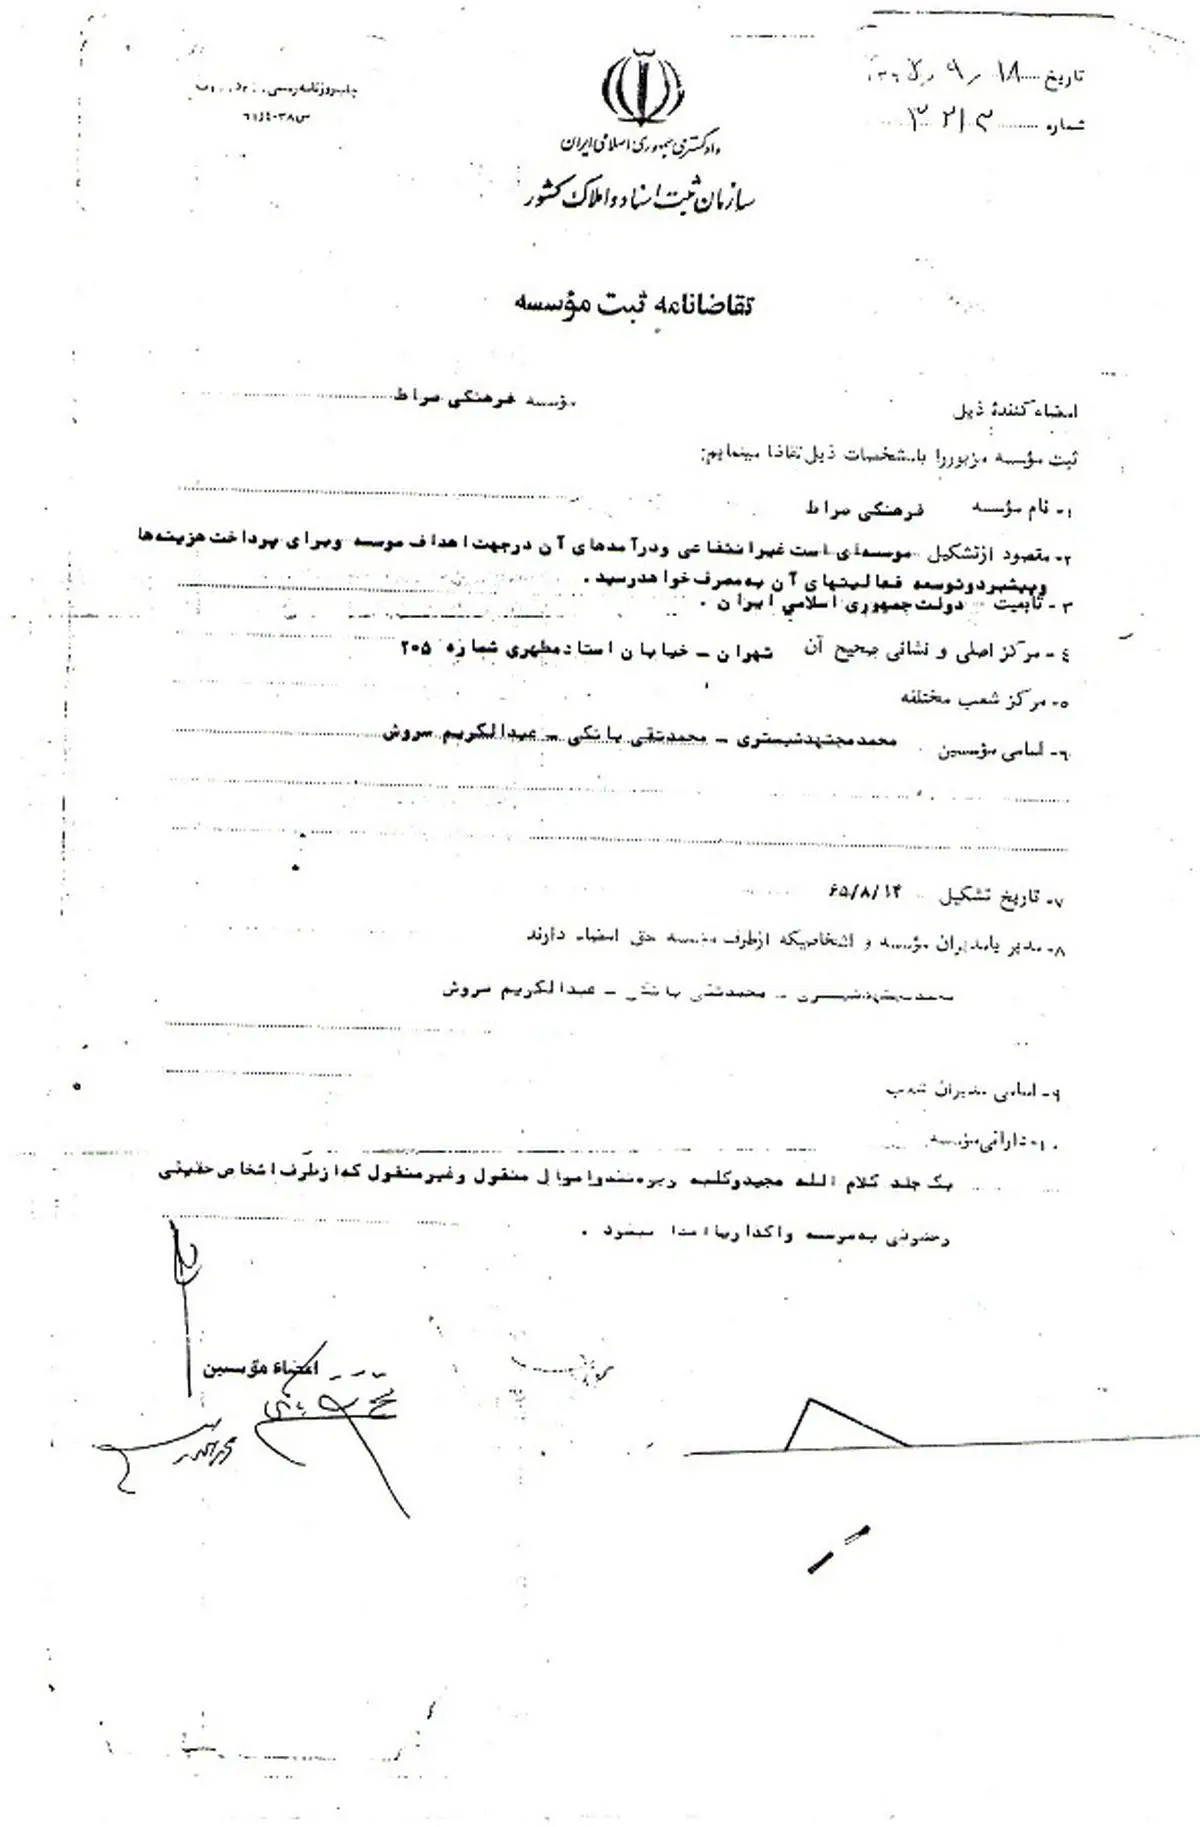 تاریخ ۱۸ ر ۹ ر
شماره ۳۲۱۳
دادگستری جمهوری اسلامی ایران
سازمان ثبت اسناد و املاک کشور
تقاضانامه ثبت مؤسسه
امضاء کنندهٔ ذیل مؤسسه فرهنگی صراط
ثبت مؤسسه مزبوررا بامشخصات ذیل تقاضا مینمایم:
۱- نام مؤسسه فرهنگی صراط
۲- مقصود ازتشکیل موسسه‌ای است غیرانتفاعی ودرآمدهای آن درجهت اهداف موسسه وبرای پرداخت هزینه‌ها
وپیشبردوتوسعه فعالیتهای آن بمصرف خواهدرسید .
۳ - تابعیت دولت جمهوری اسلامی ایران .
٤ - مرکز اصلی و نشانی صحیح آن تهران - خیابان استادمطهری شماره ۲۰۵
۵- مرکز شعب مختلفه
٦- اسامی مؤسسین محمدمجتهدشبستری - محمدتقی بانکی - عبدالکریم سروش
۷- تاریخ تشکیل ۶۵/۸/۱۴
۸- مدیر یامدیران مؤسسه و اشخاصیکه ازطرف مؤسسه حق امضاء دارند
محمدمجتهدشبستری - محمدتقی بانکی - عبدالکریم سروش
۹- اسامی مدیران شعب
۱۰- دارائی مؤسسه
یک جلد کلام الله مجیدوکلیه واموال منقول وغیرمنقول که ازطرف اشخاص حقیقی
وحقوقی به موسسه واگذاریااهدا میشود .
امضاء مؤسسین